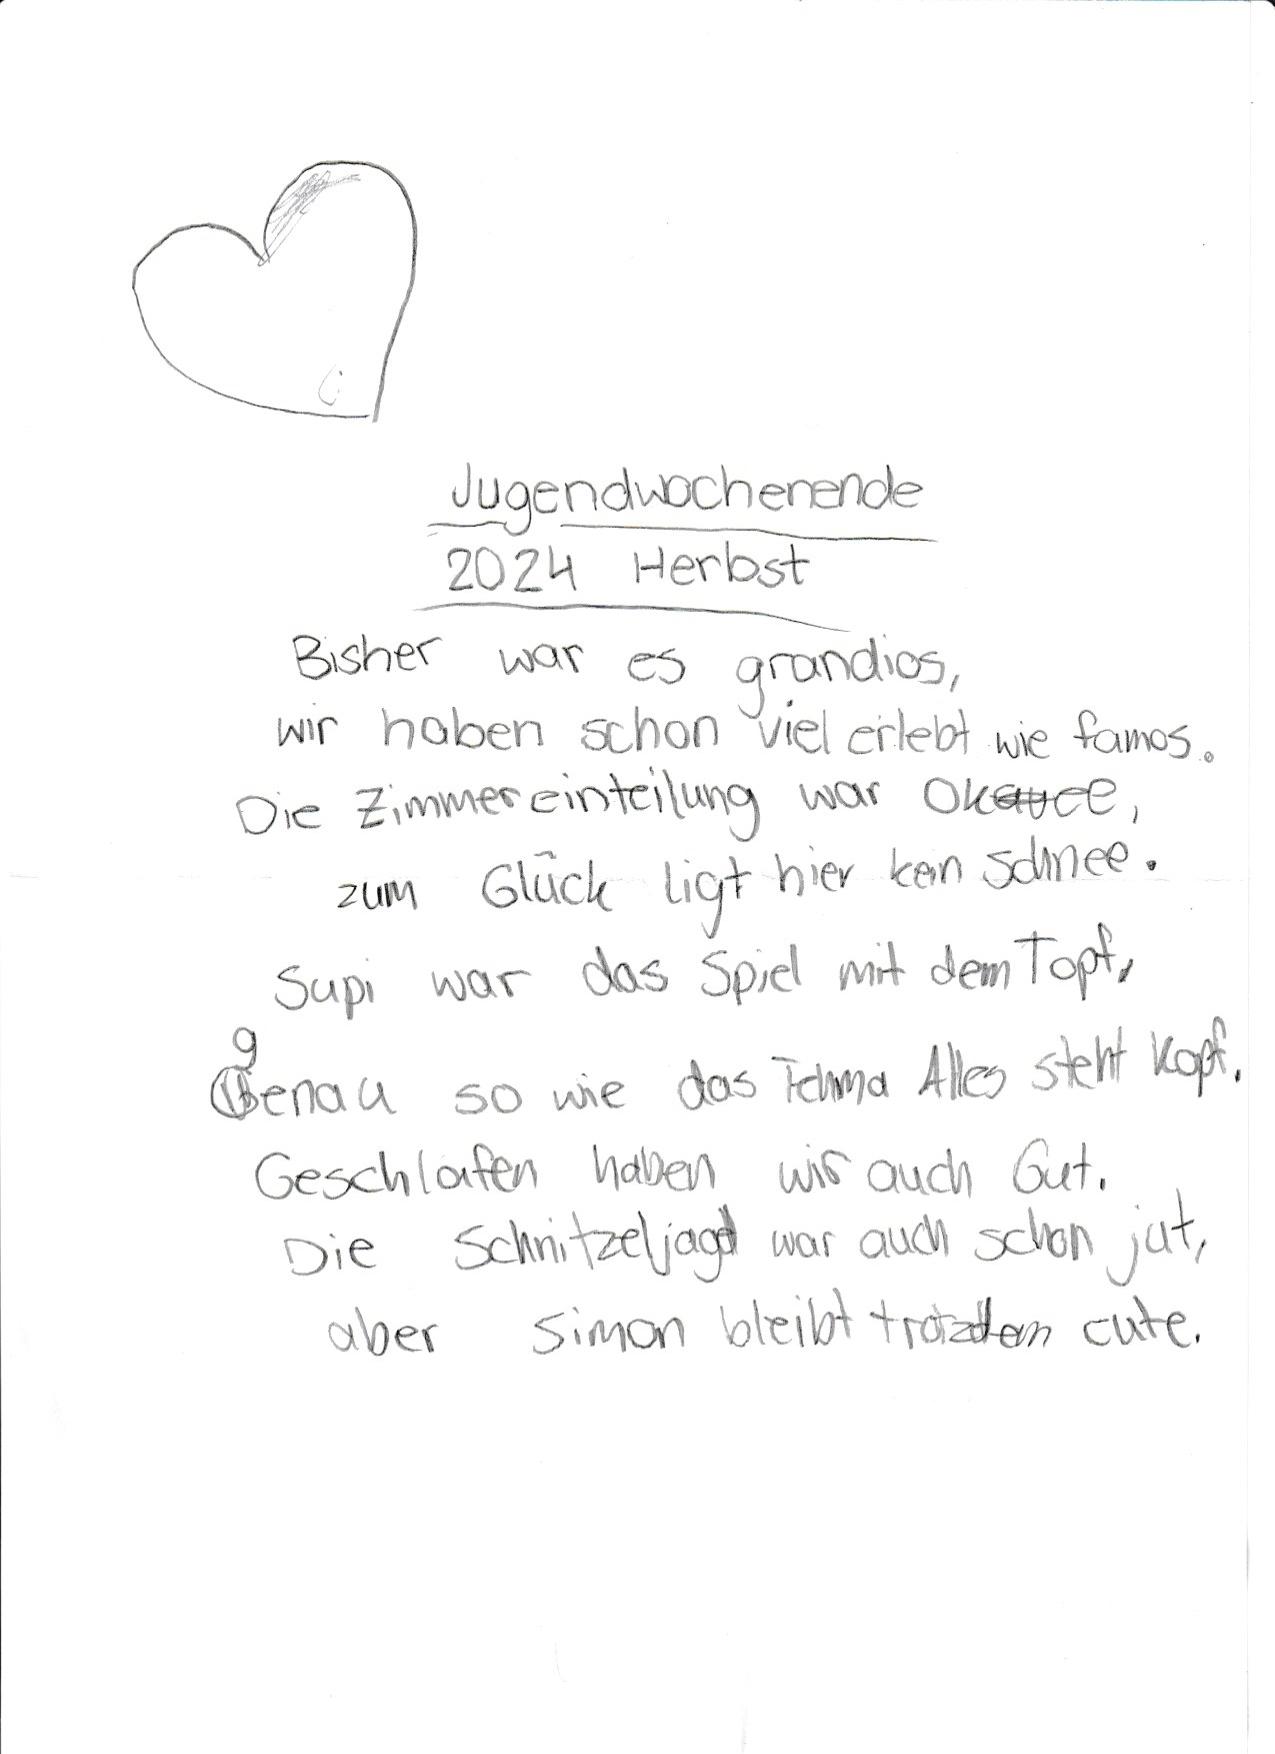 Jugendwochenende
2024 Herbst
Bisher war es grandios,
wir haben schon viel erlebt wie famos.
Die Zimmereinteilung war Okee,
zum Glück ligt hier kein Schnee.
Supi war das Spiel mit dem Topf,
genau so wie das Tehma Alles steht Kopf.
Geschlafen haben wir auch Gut.
Die Schnitzeljagd war auch schon jut,
aber Simon bleibt trotzdem cute.